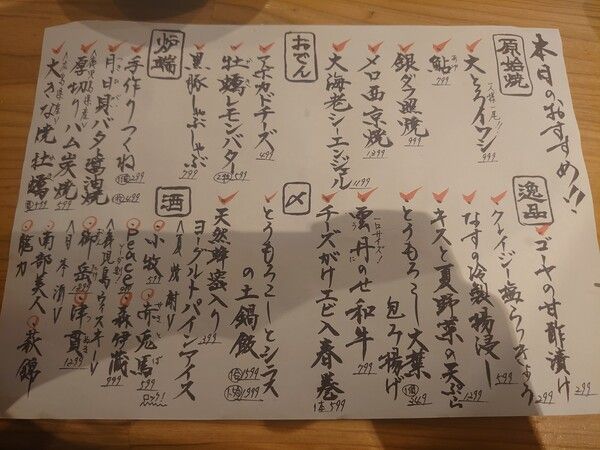 本日のおすすめ!!
原始焼
大とろイワシ 999
鮎 799
銀ダラ照焼 999
メロ西京焼 1299
大海老シーエンジェル 1199
おでん
アボカドチーズ 499
牡蠣レモンバター 599
黒豚しゃぶしゃぶ 799
炉端
手作りつくね 299
月日貝バター醤油焼 499
厚切りハム炭焼 599
大きな焼牡蠣 599
逸品
ゴーヤの甘酢漬け 299
クレイジー塩らっきょう 299
なすの冷製揚浸し 599
キスと夏野菜の天ぷら 1299
とうもろこし大葉包み揚げ 349
雲丹のせ和牛 799
チーズがけエビ入春巻 1本599
〆
とうもろこしとシラスの土鍋飯 1599 1999
天然蜂蜜入りヨーグルトパインアイス 399
酒
小牧 599
赤兎馬 599
森伊蔵 999
御岳
津貫 1299
<日本酒>
南部美人
萩錦